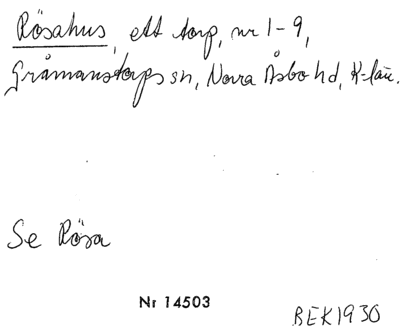 Rösahus, ett torp, nr 1-9,
Gråmanstorps sn, Norra Åsbo hd, K-län.
Se Rösa
Nr 14503
BEK1930